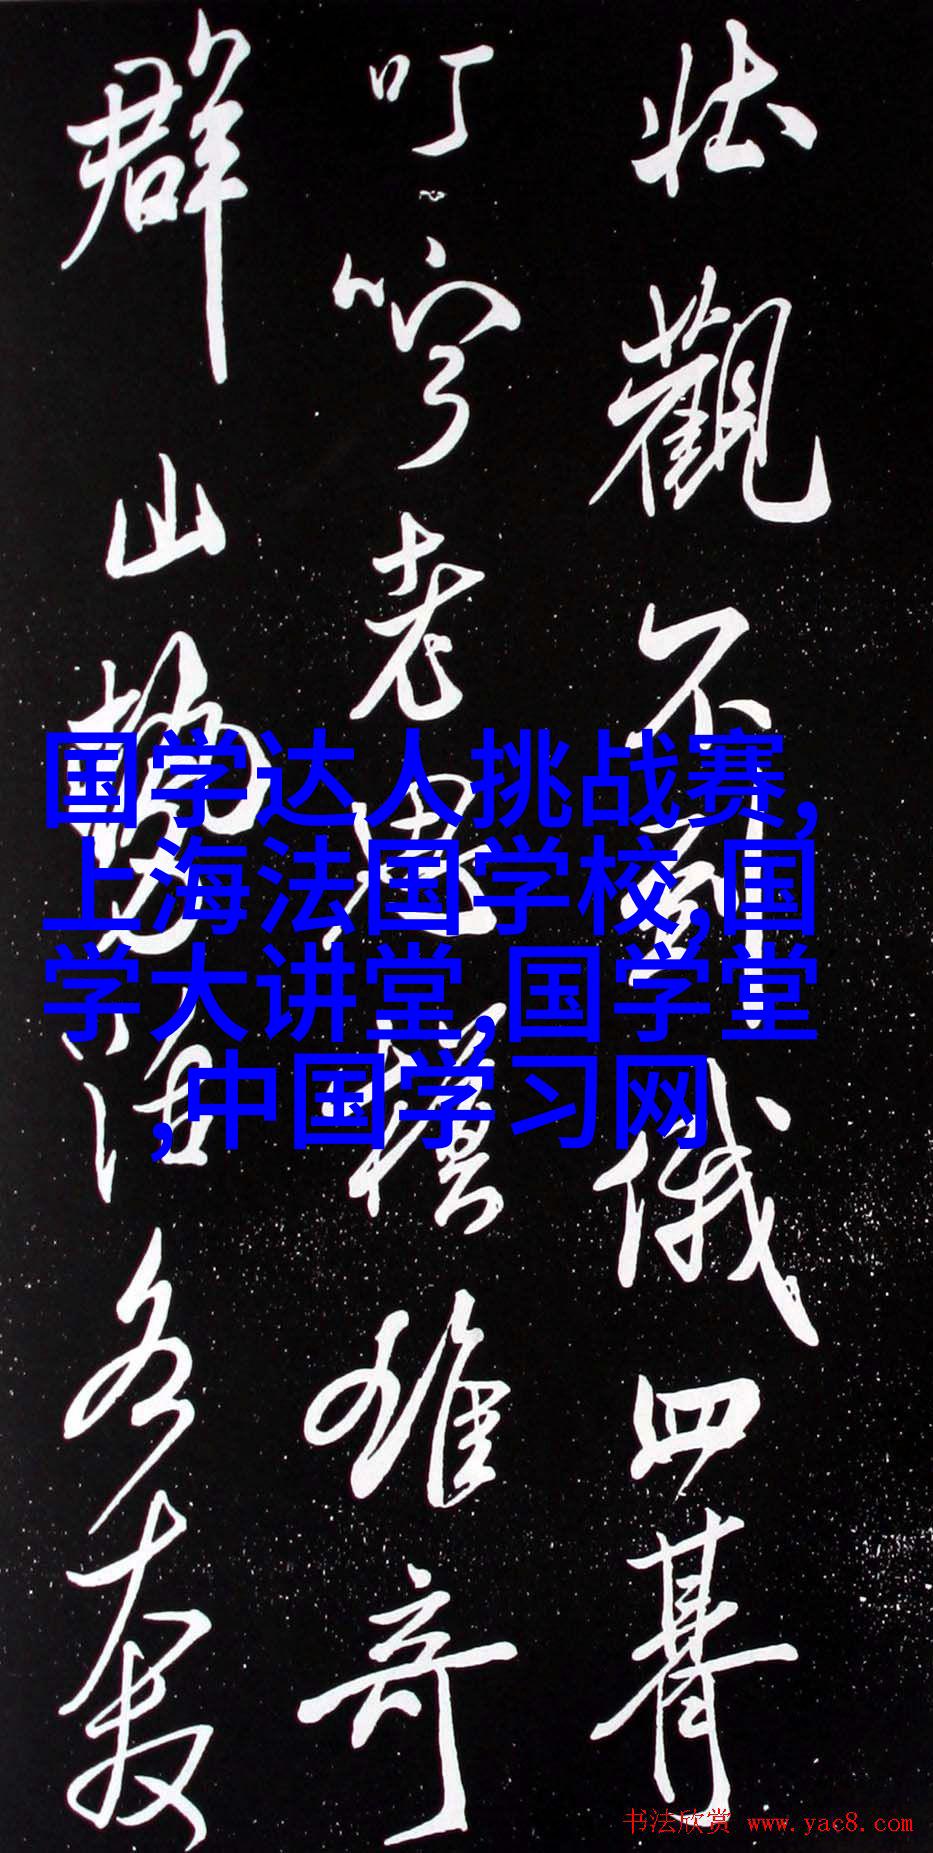 壮觀不俄四
叮寧老雄奇
群山勢各奔
国学达人挑战赛,
上海法国学校,国
学大讲堂,国学堂
,中国学习网
书法欣赏 www.yac8.com